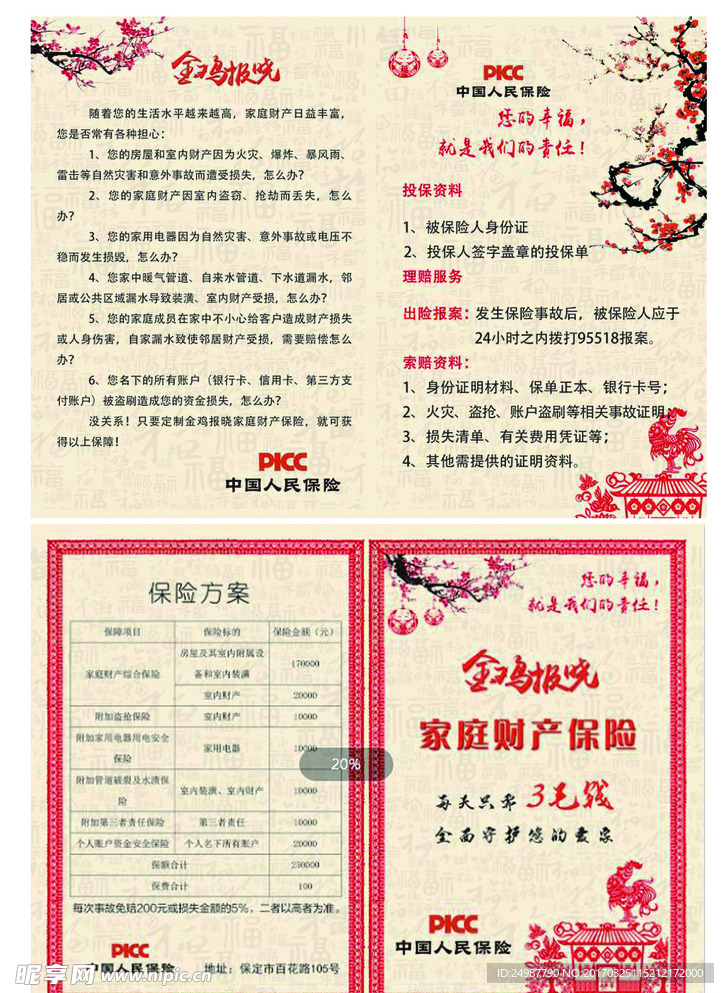 金鸡报晓
随着您的生活水平越来越高，家庭财产日益丰富，
您是否常有各种担心：
1、您的房屋和室内财产因为火灾、爆炸、暴风雨、
雷击等自然灾害和意外事故而遭受损失，怎么办？
2、您的家庭财产因室内盗窃、抢劫而丢失，怎么
办？
3、您的家用电器因为自然灾害、意外事故或电压不
稳而发生损毁，怎么办？
4、您家中暖气管道、自来水管道、下水道漏水，邻
居或公共区域漏水导致装潢、室内财产受损，怎么办？
5、您的家庭成员在家中不小心给客户造成财产损失
或人身伤害，自家漏水致使邻居财产受损，需要赔偿怎么
办？
6、您名下的所有账户（银行卡、信用卡、第三方支
付账户）被盗刷造成您的资金损失，怎么办？
没关系！只要定制金鸡报晓家庭财产保险，就可获
得以上保障！
PICC
中国人民保险
PICC
中国人民保险
您的幸福，
就是我们的责任！
投保资料
1、被保险人身份证
2、投保人签字盖章的投保单
理赔服务
出险报案：发生保险事故后，被保险人应于
24小时之内拨打95518报案。
索赔资料：
1、身份证明材料、保单正本、银行卡号；
2、火灾、盗抢、账户盗刷等相关事故证明；
3、损失清单、有关费用凭证等；
4、其他需提供的证明资料。
保险方案
保障项目 保险标的 保险金额（元）
家庭财产综合保险 房屋及其室内附属设
备和室内装潢 170000
室内财产 20000
附加盗抢保险 室内财产 10000
附加家用电器用电安全
保险 家用电器 10000
附加管道破裂及水渍保
险 室内装潢、室内财产 10000
附加第三者责任保险 第三者责任 10000
个人账户资金安全保险 个人名下所有账户 20000
保额合计 250000
保费合计 100
每次事故免赔200元或损失金额的5%，二者以高者为准。
PICC
中国人民保险
地址：保定市百花路105号
20%
您的幸福，
就是我们的责任！
金鸡报晓
家庭财产保险
每天只需3毛钱
全面守护您的爱家
PICC
中国人民保险
昵享网 www.nipic.cn
ID:24987790 NO:20170325115212172000